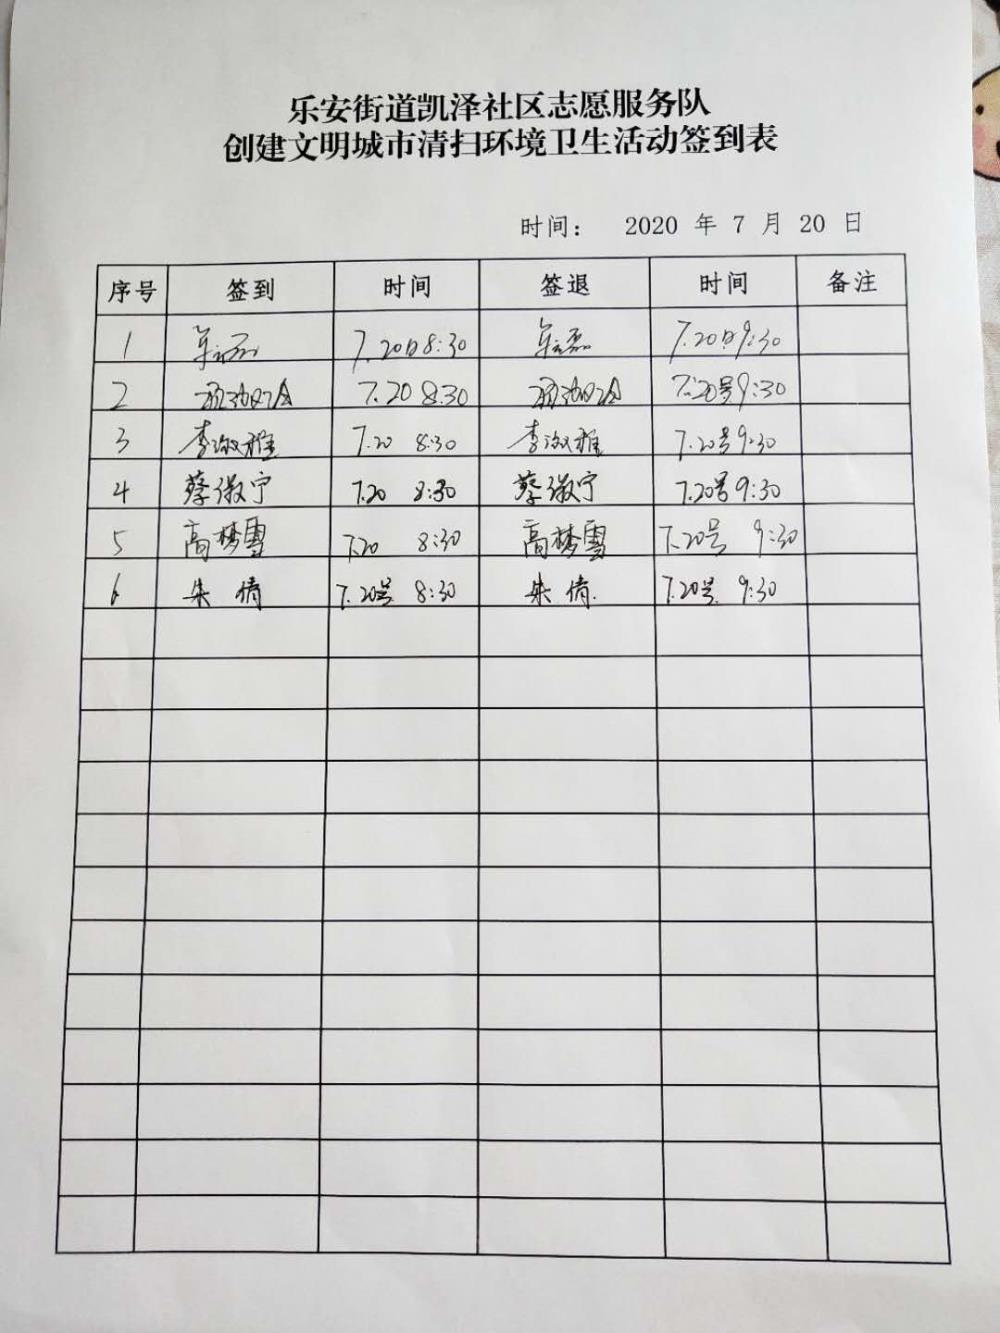 乐安街道凯泽社区志愿服务队
创建文明城市清扫环境卫生活动签到表
时间： 2020 年 7 月 20 日
序号 签到 时间 签退 时间 备注
1 7.20日8:30 7.20日9:30
2 7.20 8:30 7.20号9:30
3 李淑雅 7.20 8:30 李淑雅 7.20号9:30
4 蔡淑宁 7.20 8:30 蔡淑宁 7.20号9:30
5 高梦雪 7.20 8:30 高梦雪 7.20号 9:30
6 朱倩 7.20号 8:30 朱倩. 7.20号 9:30